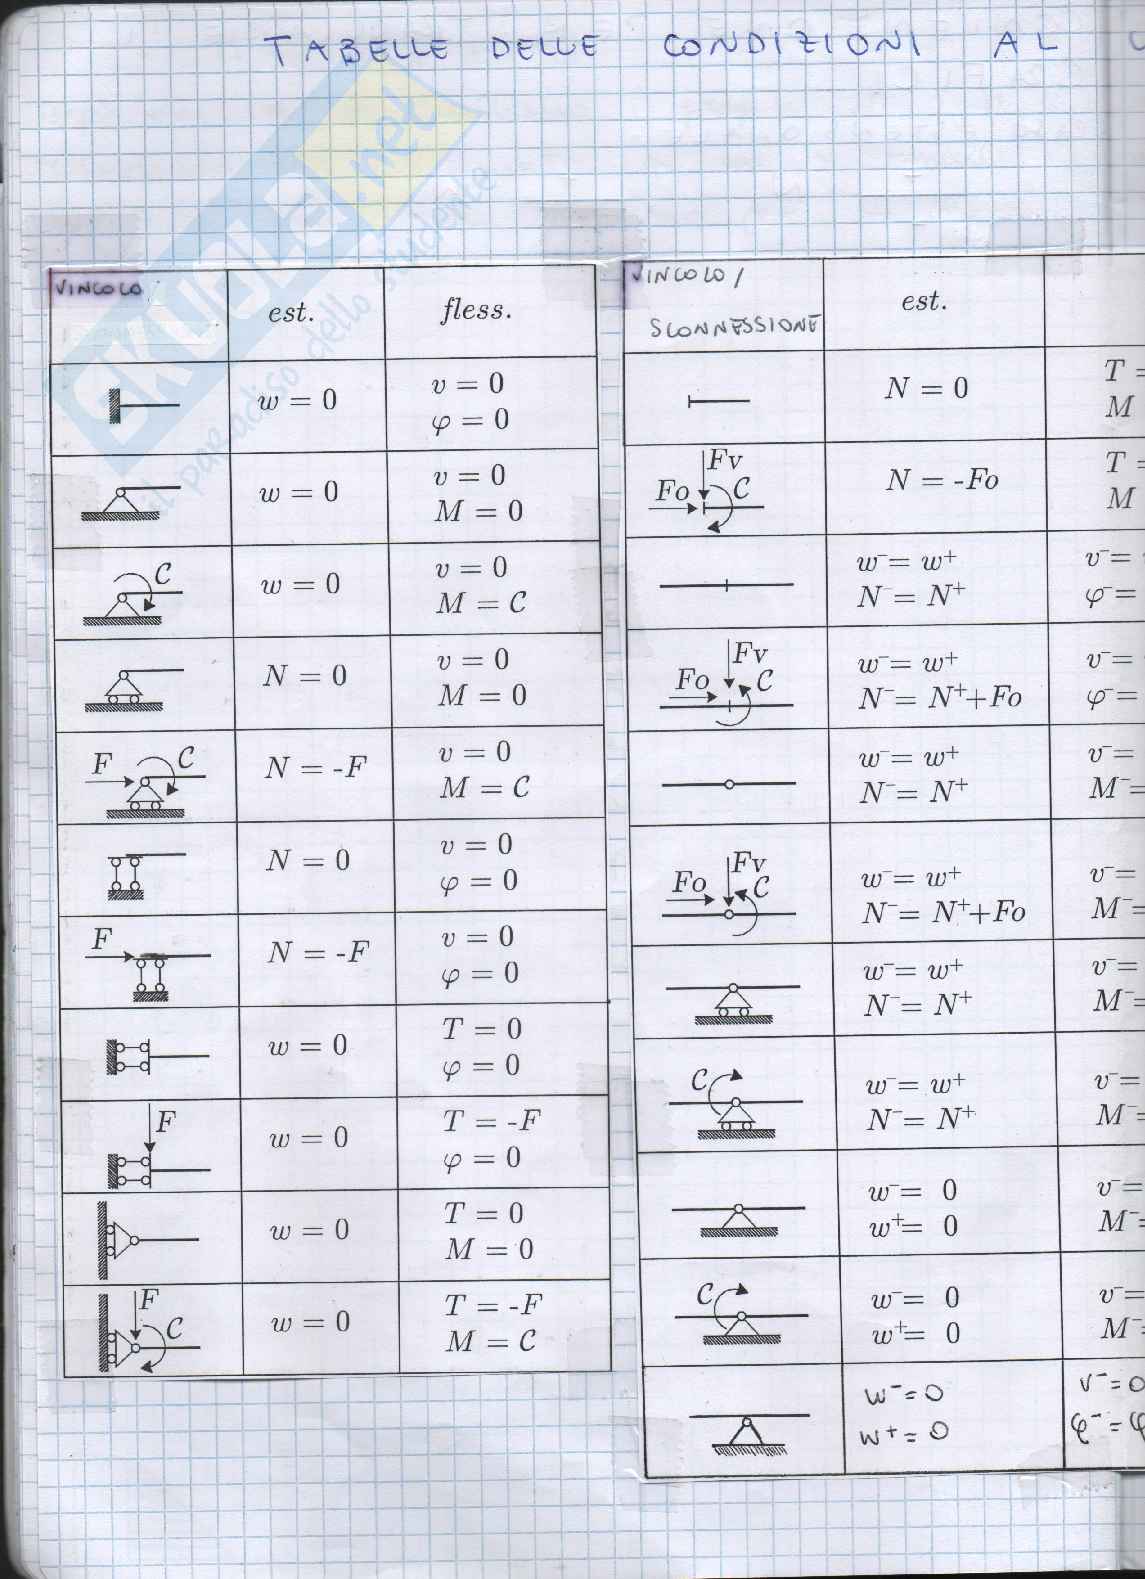 TABELLE DELLE CONDIZIONI AL
SKUOLA.net
il paradiso dello studente
VINCOLO
est.
fless.
w = 0
v = 0
φ = 0
w = 0
v = 0
M = 0
C
w = 0
v = 0
M = C
N = 0
v = 0
M = 0
F
C
N = -F
v = 0
M = C
N = 0
v = 0
φ = 0
F
N = -F
v = 0
φ = 0
w = 0
T = 0
φ = 0
F
w = 0
T = -F
φ = 0
w = 0
T = 0
M = 0
F
C
w = 0
T = -F
M = C
VINCOLO /
SCONNESSIONE
est.
N = 0
T =
M
Fv
Fo
C
N = -Fo
T =
M
w⁻ = w⁺
N⁻ = N⁺
v⁻ =
φ⁻ =
Fv
Fo
C
w⁻ = w⁺
N⁻ = N⁺+Fo
v⁻ =
φ⁻ =
w⁻ = w⁺
N⁻ = N⁺
v⁻ =
M⁻ =
Fv
Fo
C
w⁻ = w⁺
N⁻ = N⁺+Fo
v⁻ =
M⁻ =
w⁻ = w⁺
N⁻ = N⁺
v⁻ =
M⁻ =
C
w⁻ = w⁺
N⁻ = N⁺
v⁻ =
M⁻ =
w⁻ = 0
w⁺ = 0
v⁻ =
M⁻ =
C
w⁻ = 0
w⁺ = 0
v⁻ =
M⁻ =
w⁻ = 0
w⁺ = 0
v⁻ = 0
φ⁻ = φ